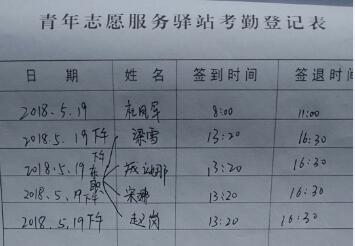 青年志愿服务驿站考勤登记表
日 期 姓 名 签到时间 签退时间
2018.5.19 8:00 11:00
2018.5.19下午 梁雪 13:20 16:30
2018.5.19下午 13:20 16:30
2018.5.19下午 宋娜 13:20 16:30
2018.5.19下午 赵岗 13:20 16:30